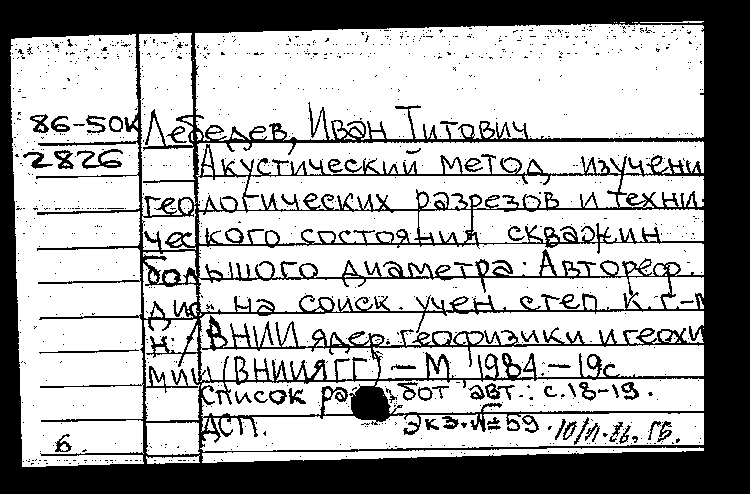 86-50к Лебедев, Иван Титович
2826 Акустический метод изучени
геологических разрезов и техни-
ческого состояния скважин
большого диаметра: Автореф.
дис. на соиск. учен. степ к. г.-м
н: / ВНИИ ядер. геофизики и геохи
мии (ВНИИЯГГ) – М 1984. – 19с
Список работ авт.: с.18-19.
ДСП. Экз. № 59.
6